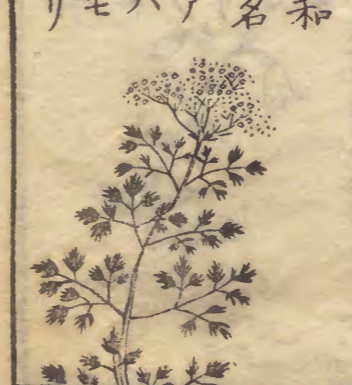 和名アハモリ